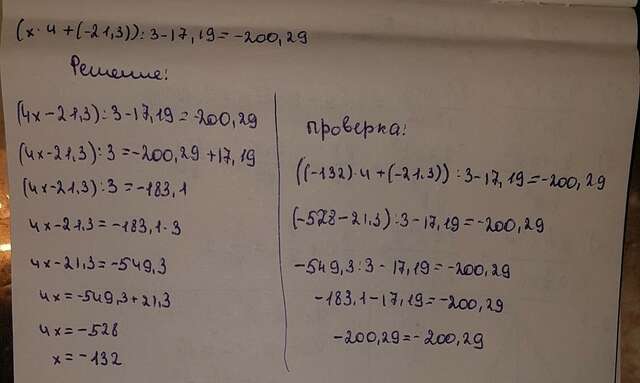 (x·4+(-21,3)):3-17,19=-200,29
Решение:
(4x-21,3):3-17,19=-200,29
(4x-21,3):3=-200,29+17,19
(4x-21,3):3=-183,1
4x-21,3=-183,1·3
4x-21,3=-549,3
4x=-549,3+21,3
4x=-528
x=-132
проверка:
((-132)·4+(-21,3)):3-17,19=-200,29
(-528-21,3):3-17,19=-200,29
-549,3:3-17,19=-200,29
-183,1-17,19=-200,29
-200,29=-200,29